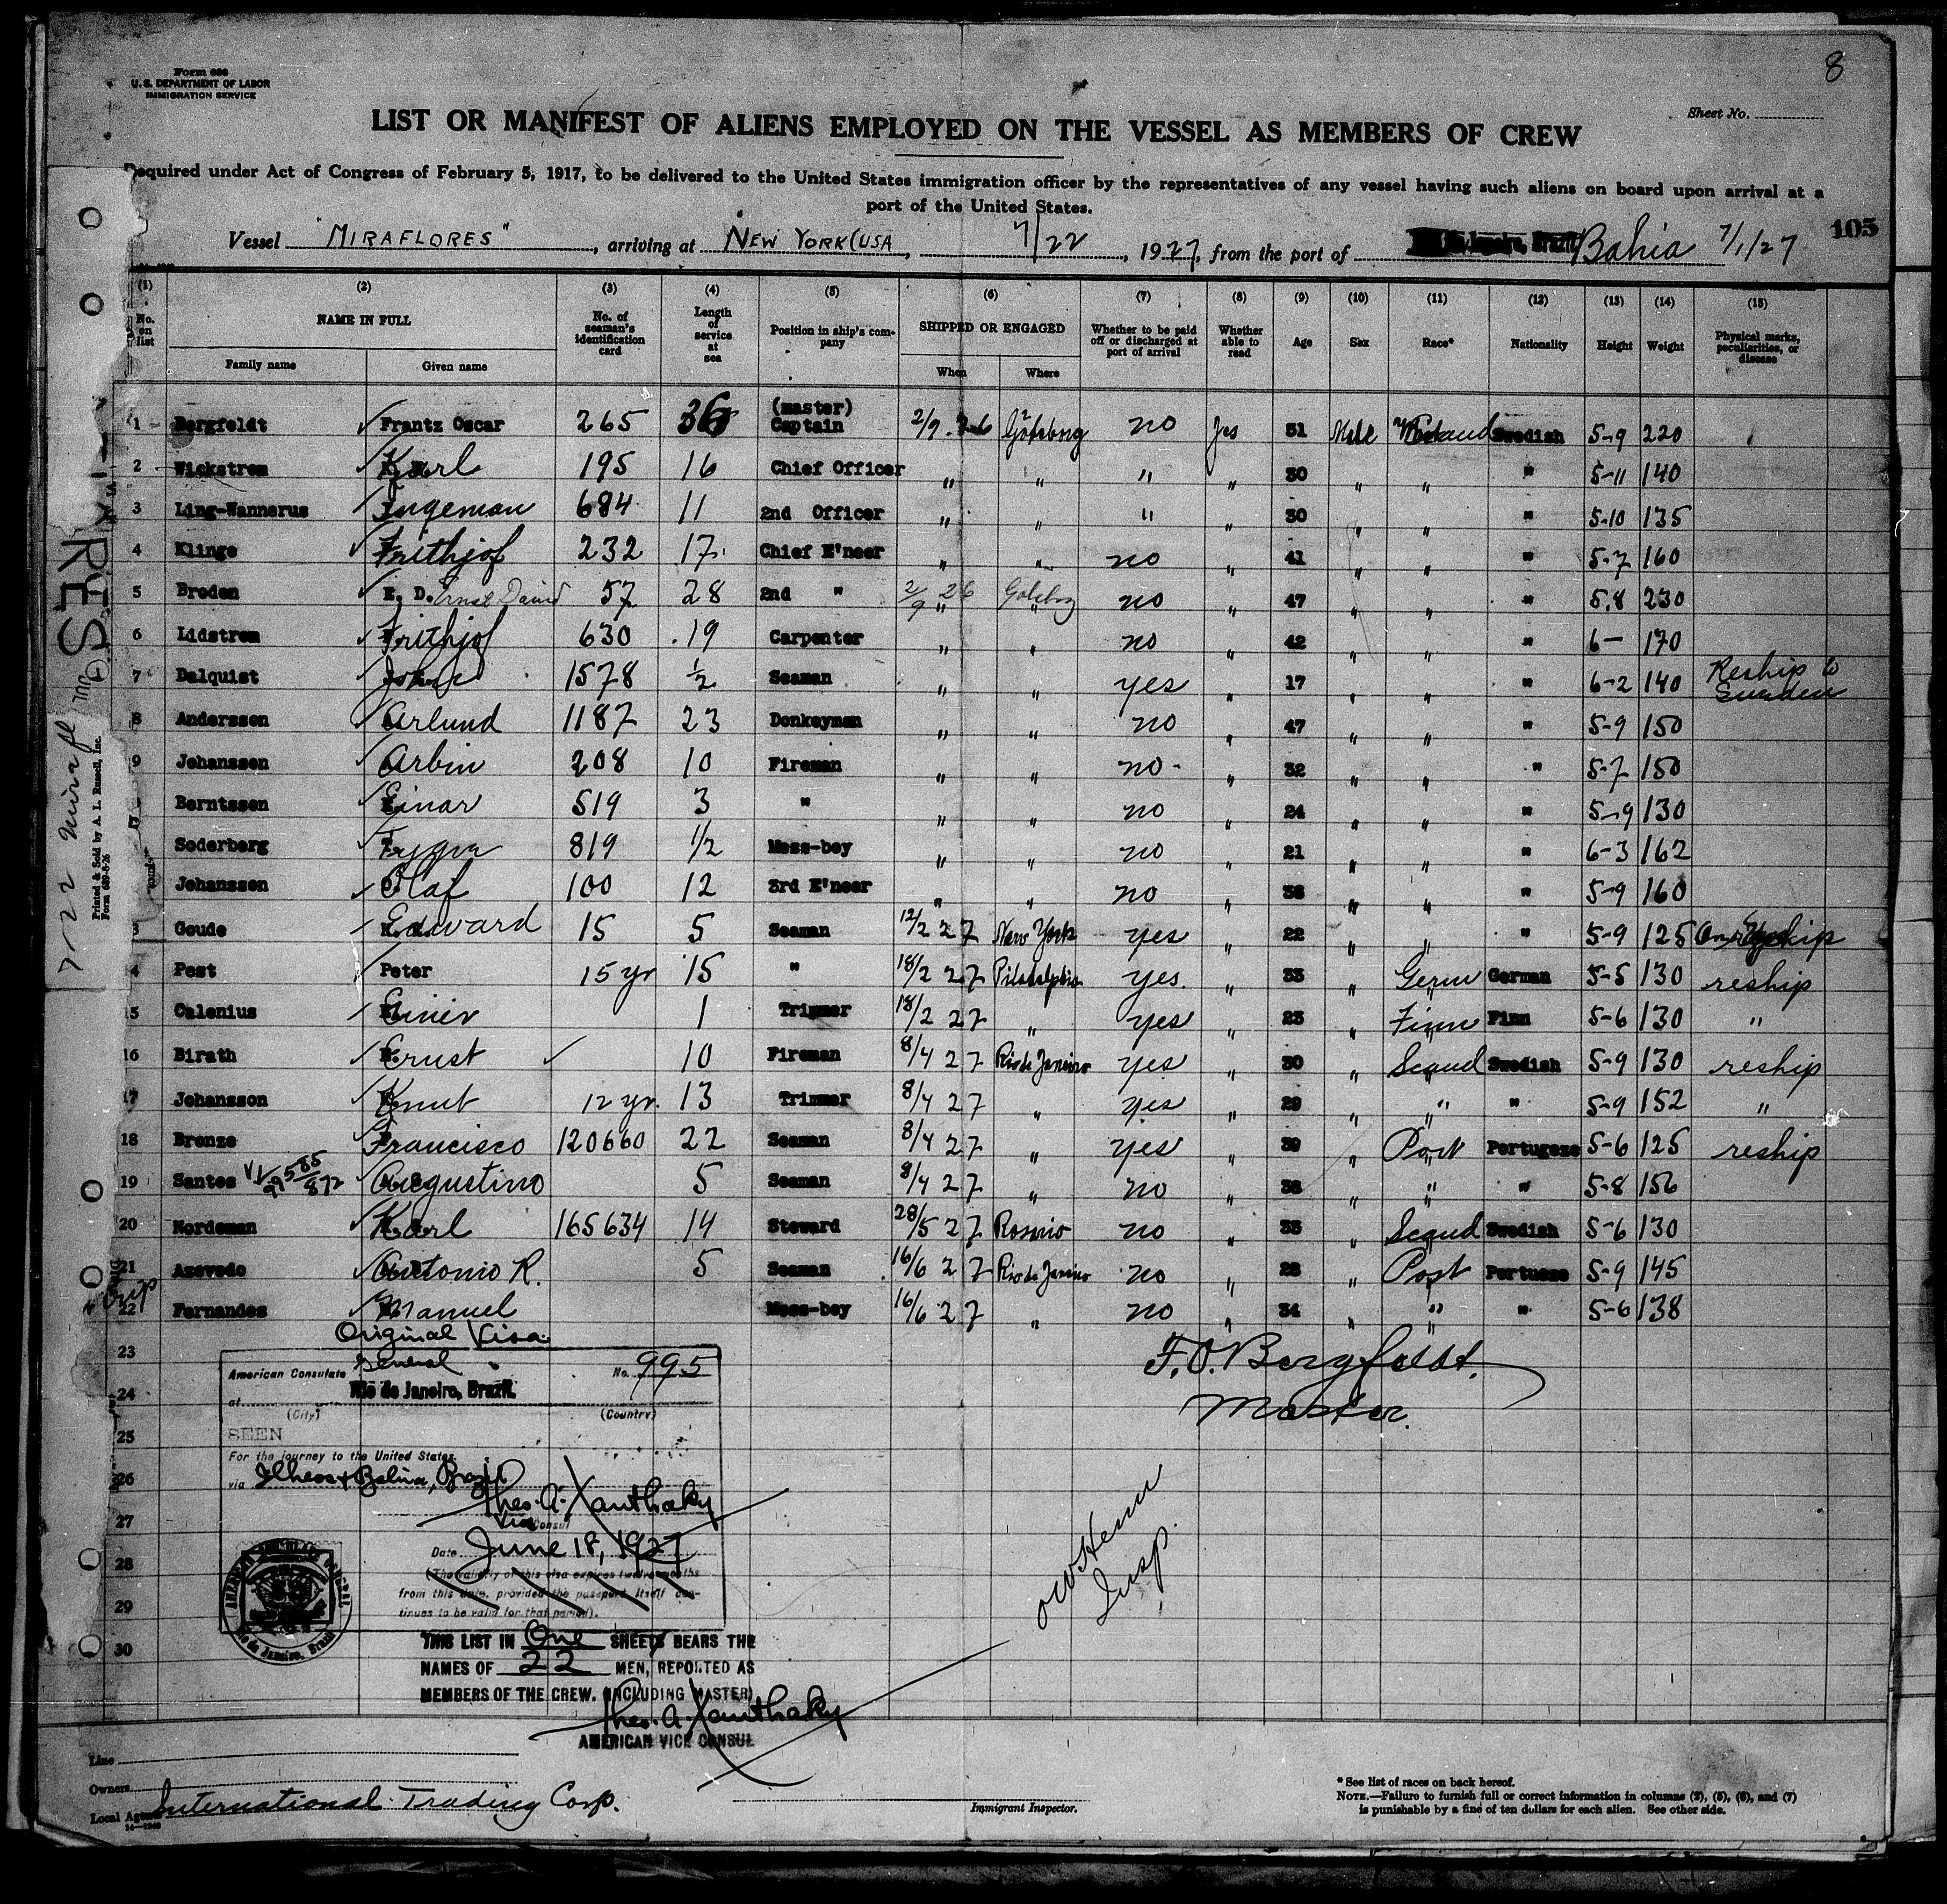 8
Form 689
U. S. DEPARTMENT OF LABOR
IMMIGRATION SERVICE
Sheet No.
LIST OR MANIFEST OF ALIENS EMPLOYED ON THE VESSEL AS MEMBERS OF CREW
Required under Act of Congress of February 5, 1917, to be delivered to the United States immigration officer by the representatives of any vessel having such aliens on board upon arrival at a
port of the United States.
Vessel "MIRAFLORES", arriving at NEW YORK (USA, 7/22, 1927, from the port of Bahia 7/1/27 105
(1) (2) (3) (4) (5) (6) (7) (8) (9) (10) (11) (12) (13) (14) (15)
No. on list NAME IN FULL No. of seaman's identification card Length of service at sea Position in ship's company SHIPPED OR ENGAGED Whether to be paid off or discharged at port of arrival Whether able to read Age Sex Race* Nationality Height Weight Physical marks, peculiarities, or disease
Family name Given name When Where
1 Bergfeldt Frantz Oscar 265 36 (master) Captain 2/9 26 Göteborg no yes 51 Male Swedish 5-9 220
2 Wickstrom Karl 195 16 Chief Officer " " " " 30 " " " 5-11 140
3 Ling-Wannerus Ingeman 684 11 2nd Officer " " " " 30 " " " 5-10 135
4 Klinge Frithjof 232 17 Chief E'neer " " no " 41 " " " 5-7 160
5 Breden E. D. Ernst David 57 28 2nd " 2/9 26 Goteborg no " 47 " " " 5.8 230
6 Lidstrom Frithjof 630 19 Carpenter " " no " 42 " " " 6— 170
7 Dalquist John 1578 1/2 Seaman " " yes " 17 " " " 6-2 140 Reship to Sweden
8 Anderssen Arlund 1187 23 Donkeyman " " no " 47 " " " 5-9 150
9 Johanssen Arbin 208 10 Fireman " " no " 32 " " " 5-7 150
Berntssen Einar 519 3 " " " no " 24 " " " 5-9 130
Soderberg Trygva 819 1/2 Mess-boy " " no " 21 " " " 6-3 162
Johanssen Olaf 100 12 3rd E'neer " " no " 36 " " " 5-9 160
3 Goude Edward 15 5 Seaman 12/2 27 New York yes " 22 " " " 5-9 125
4 Pest Peter 15 yr 15 " 18/2 27 Philadelphia yes. " 33 " Germ German 5-5 130 reship
5 Calenius Einer 1 Trimmer 18/2 27 " yes " 23 " Finn Finn 5-6 130 "
16 Birath Ernst 10 Fireman 8/4 27 Rio de Janeiro yes " 30 " Scand Swedish 5-9 130 reship
17 Johansson Knut 12 yr. 13 Trimmer 8/4 27 " yes " 29 " " " 5-9 152 "
18 Bronze Francisco 120660 22 Seaman 8/4 27 " yes " 39 " Port Portugeze 5-6 125 reship
19 Santos Augustino 5 Seaman 8/4 27 " no " 32 " " " 5-8 156
20 Nordeman Karl 165634 14 Steward 28/5 27 Rosario no " 35 " Scand Swedish 5-6 130
21 Azevedo Antonio R. 5 Seaman 16/6 27 Rio de Janeiro no " 28 " Port Portugeze 5-9 145
22 Fernandes Manuel Mess-boy 16/6 27 " no " 34 " " " 5-6 138
Original Visa
23
24
25
26
27
28
29
30
American Consulate General No. 995
at Rio de Janeiro, Brazil.
(City) (Country)
SEEN
For the journey to the United States
via Ilheos & Bahia, Brazil
Theo. A. Xanthaky
Vice Consul
Date June 18, 1927
(The validity of this visa expires twelve months
from this date, provided the passport itself con-
tinues to be valid for that period).
THIS LIST IN One SHEETS BEARS THE
NAMES OF 22 MEN, REPORTED AS
MEMBERS OF THE CREW. (INCLUDING MASTER)
Theo. A. Xanthaky
AMERICAN VICE CONSUL
F. O. Bergfeldt.
Master.
Insp.
Line
Owners
Local Agents International Trading Corp.
Immigrant Inspector.
* See list of races on back hereof.
NOTE.—Failure to furnish full or correct information in columns (2), (5), (6), and (7)
is punishable by a fine of ten dollars for each alien. See other side.
Printed & Sold by A. L. Russell, Inc.
Form 689-8-26
7-22
RES